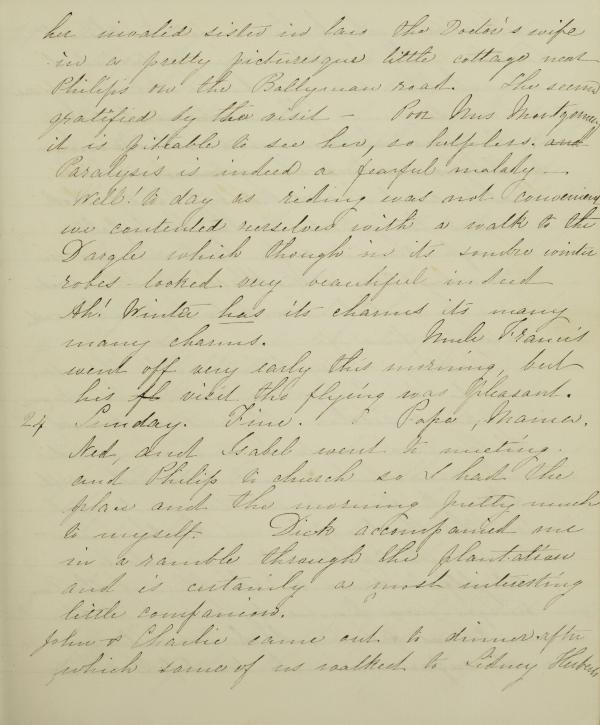 her invalid sister in law the Doctor's wife
in a pretty picturesque little cottage near
Philips on the Ballyman road. She seems
gratified by the visit – Poor Mrs Montgomery
it is pitiable to see her, so helpless. and
Paralysis is indeed a fearful malady –.
Well! to day as riding was not convenient
we contented ourselves with a walk to the
Dargle which though in its sombre winter
robes looked very beautiful indeed
Ah! Winter has its charms its many
many charms. Uncle Francis
went off very early this morning, but
his fl visit tho flying was pleasant.
24 Sunday. Fine. Papa, Mama.
Ned, and Isabel went to meeting.
and Philip to church so I had the
place and the morning pretty much
to myself. Dick accompanied me
in a ramble through the plantation
and is certainly a most interesting
little companion.
John & Charlie came out to dinner after
which some of us walked to Sidney Herberts